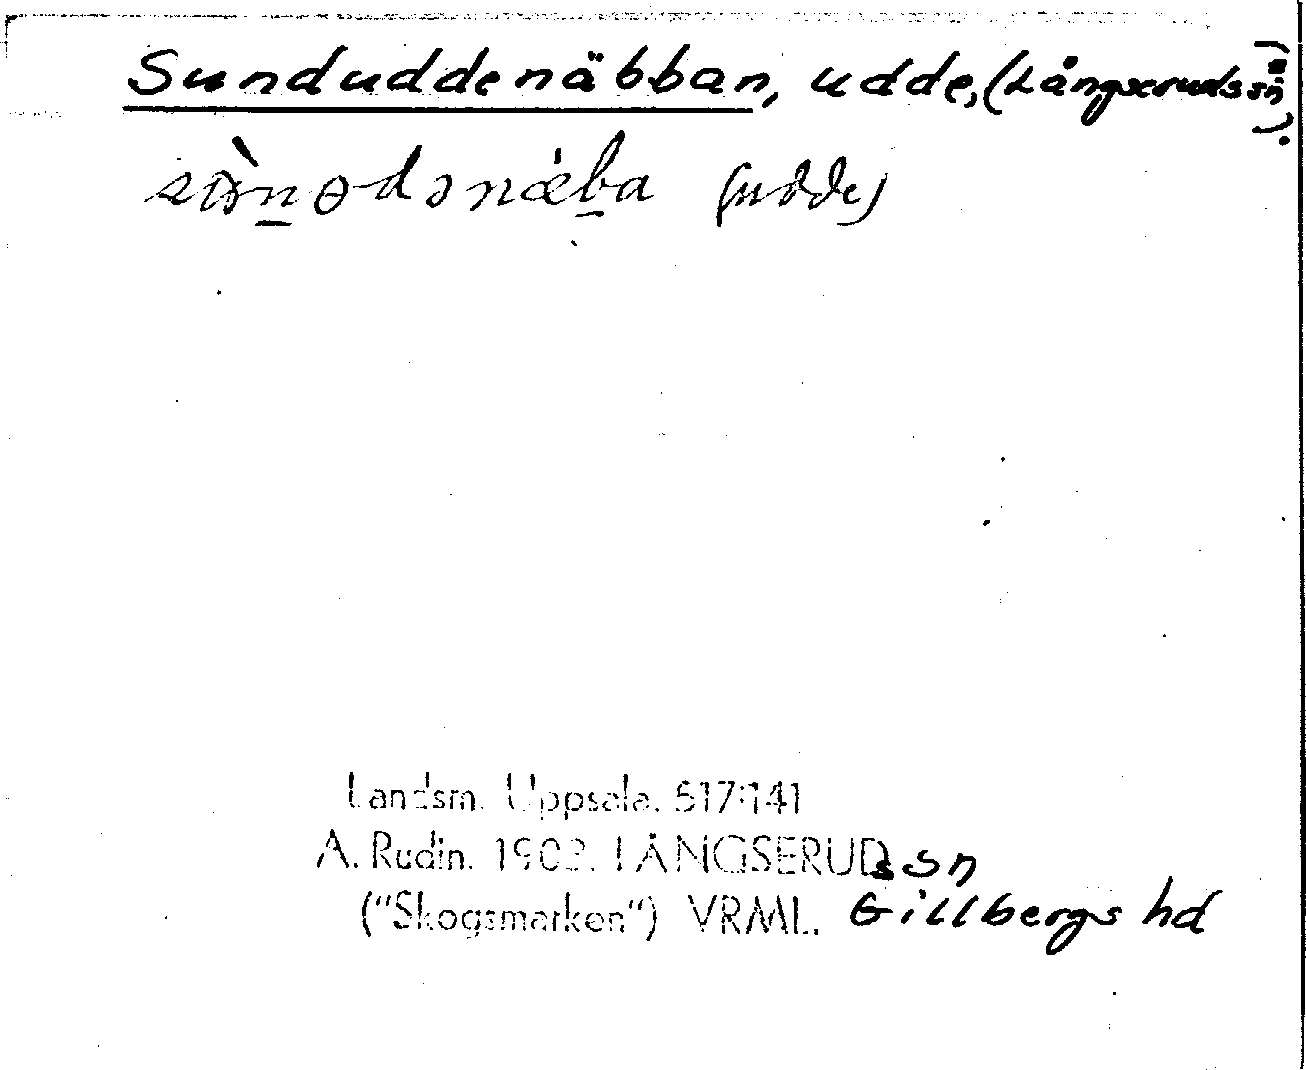 Sunduddenäbban, udde, (Långseruds sn).
(udde)
Landsm. Uppsala. 517:141
A. Rudin. 1902. LÅNGSERUDs sn
("Skogsmarken") VRML. Gillbergs hd